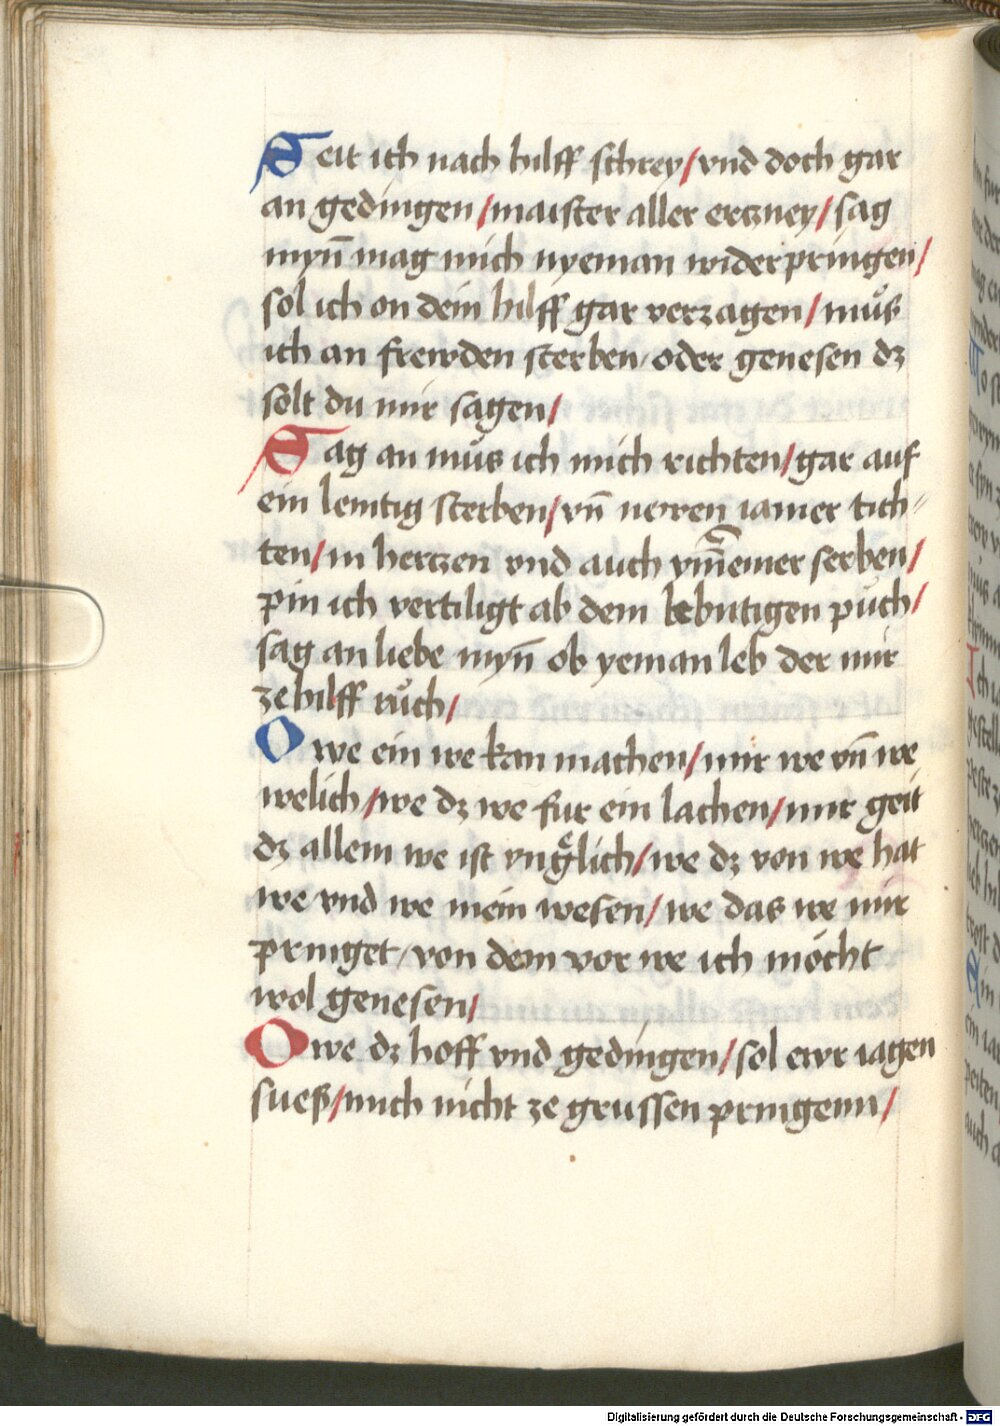 Seit ich nach hilff schrey/vnd doch gar
an gedingen/maister aller ertzney/sag
myn̄ mag mich nyeman wider pringen/
sol ich on dein hilff gar verzagen/muͦs
ich an frewden sterben/oder genesen dz
solt du mir sagen/
Sag an muͦs ich mich richten/gar auf
ein lemtig sterben/vn̄ newen iamer tich-
ten/in hertzen vnd auch ym̄emer serben/
pin ich vertiligt ab dem lebntigen puͦch/
sag an liebe myn̄ ob yeman leb der mir
ze hilff ruͦch/
Owe ein we kan machen/mir we vn̄ we
welich/we dz we fur ein lachen/mir geit
dz allem we ist vngͤlich/we dz von we hat
we vnd we mein wesen/we das we mir
pringet/von dem vor we ich möcht
wol genesen/
Owe dz hoff vnd gedingen/sol ewr iagen
suess/mich nicht ze grussen pringenn/
Digitalisierung gefördert durch die Deutsche Forschungsgemeinschaft - DFG